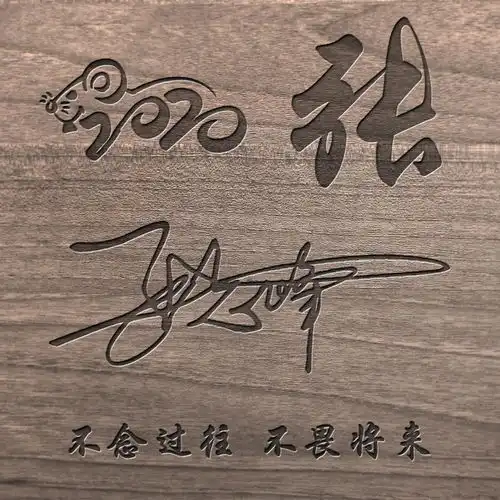 2020 张
不念过往 不畏将来